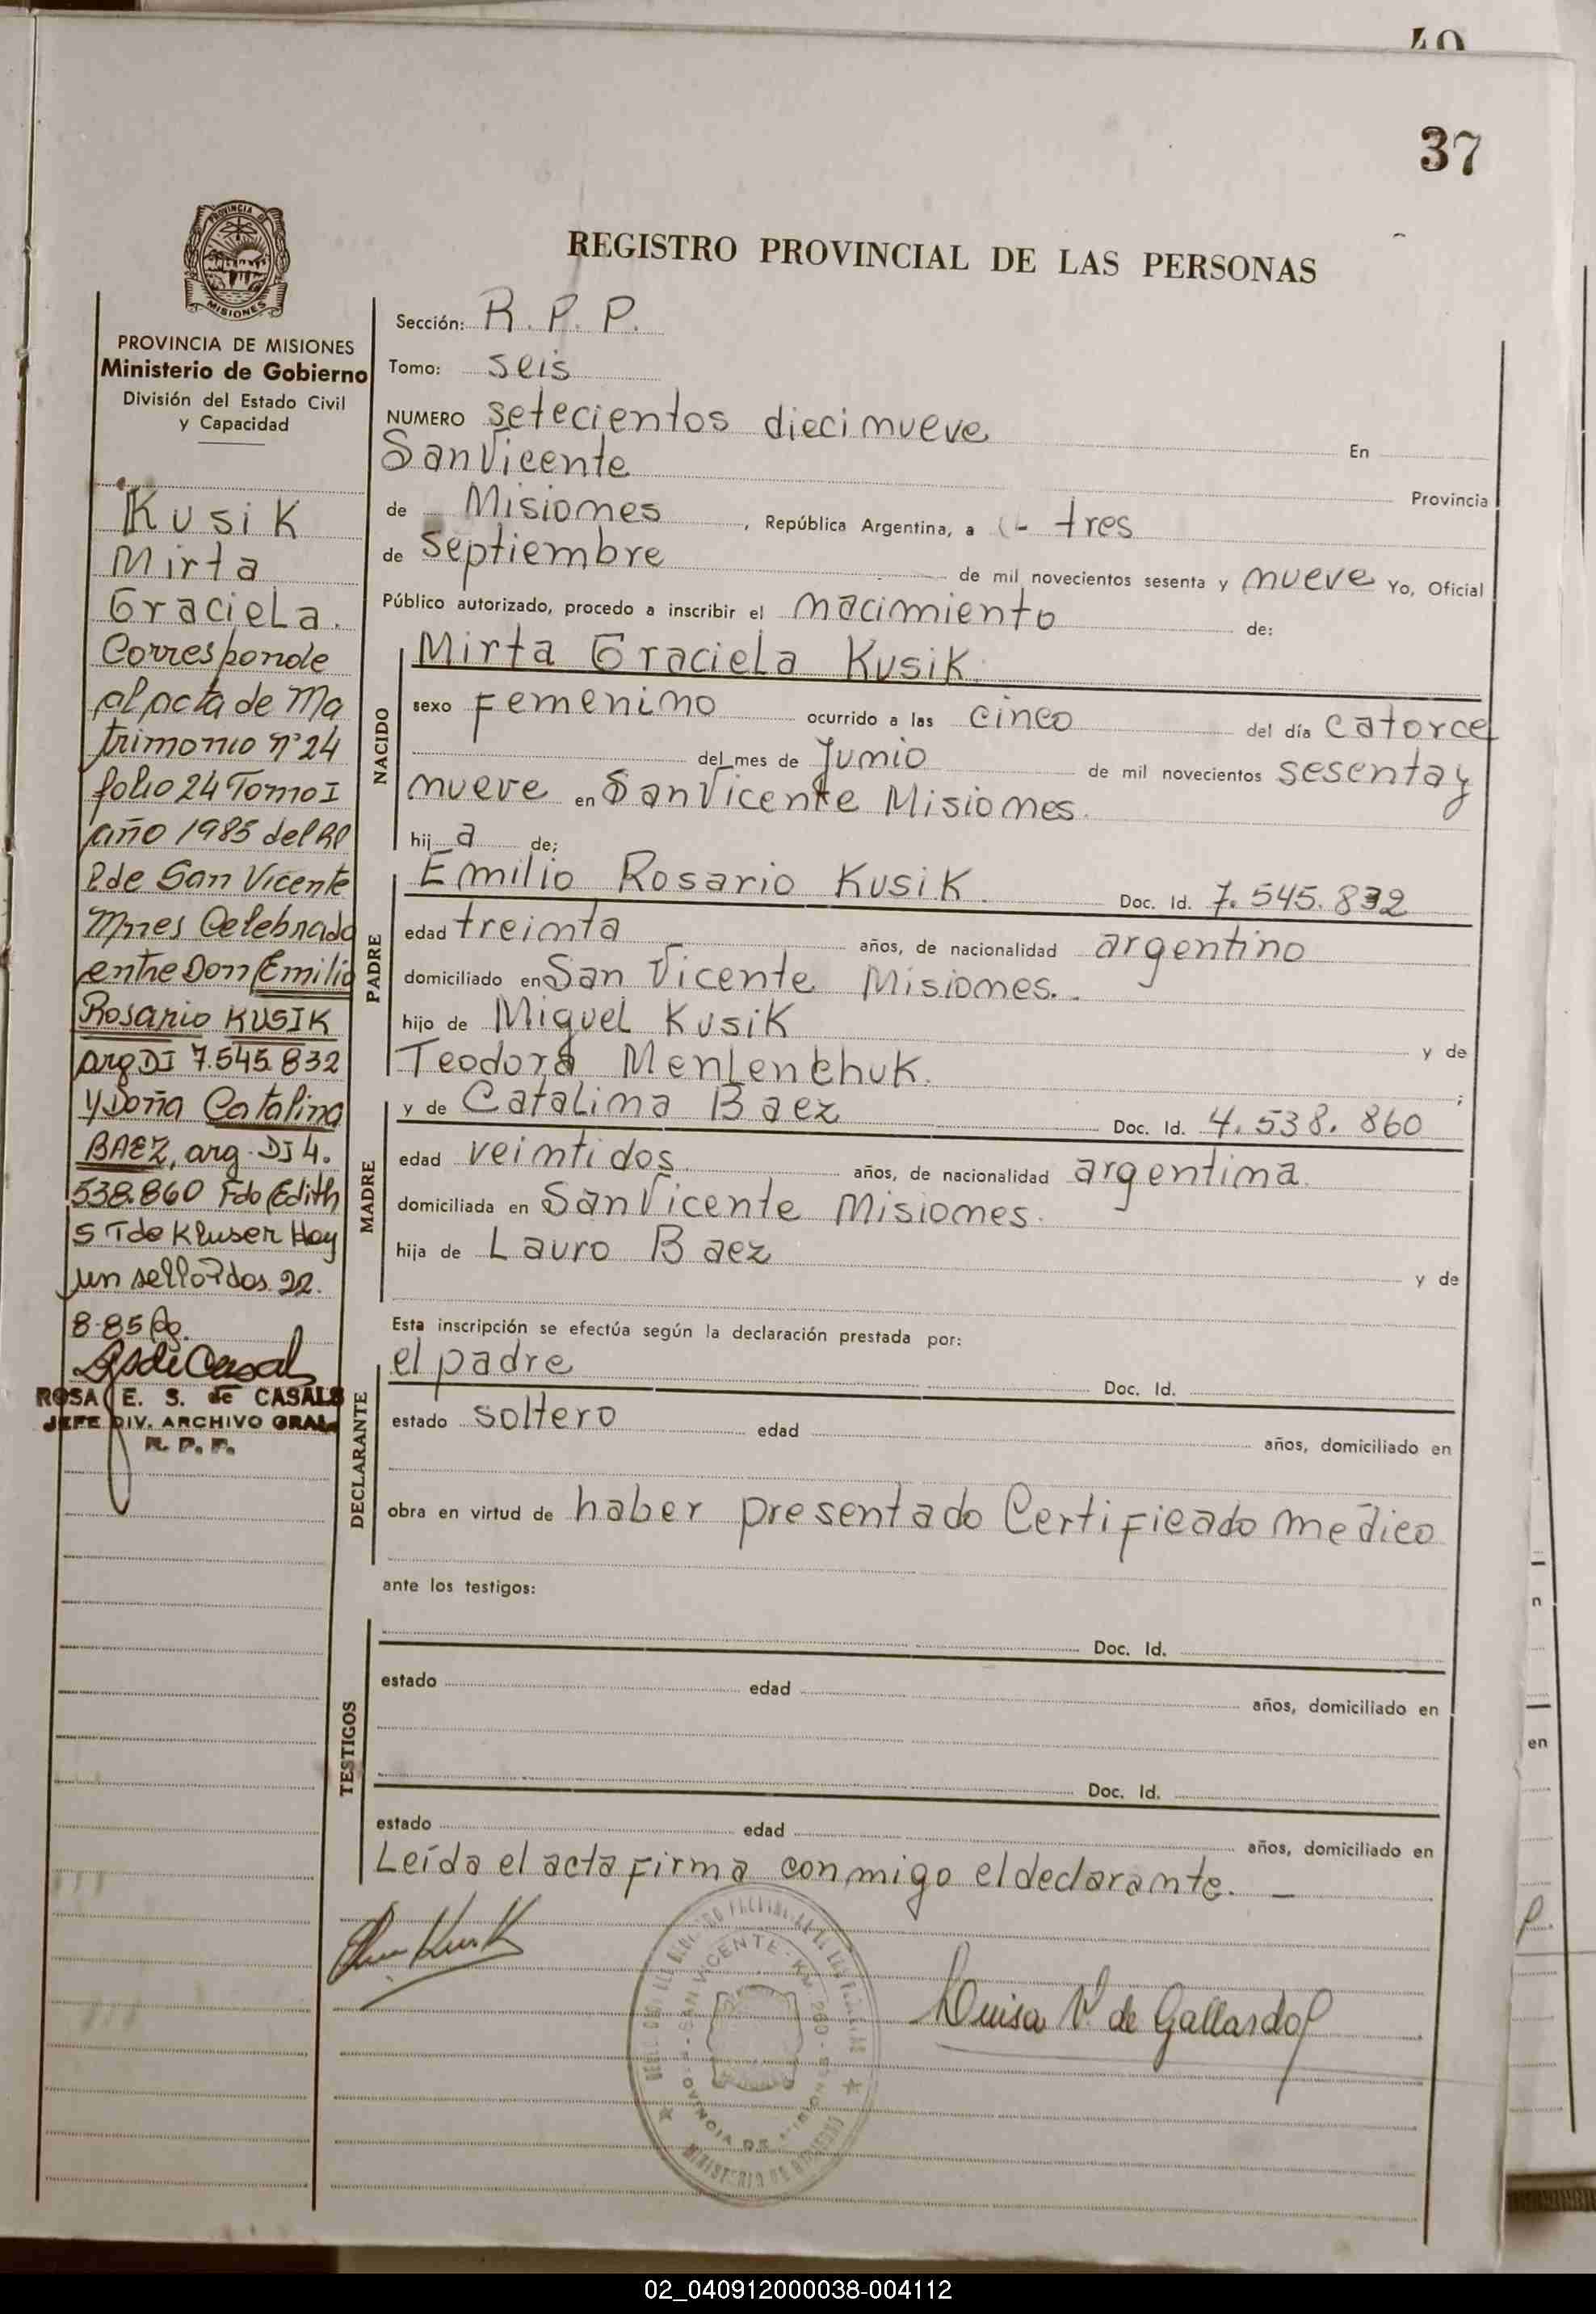 40
37
PROVINCIA DE
MISIONES
REGISTRO PROVINCIAL DE LAS PERSONAS
PROVINCIA DE MISIONES
Ministerio de Gobierno
División del Estado Civil
y Capacidad
Kusik
Mirta
Graciela.
Corresponde
al acta de Ma
trimonio n° 24
folio 24 Tomo I
año 1985 del RP
P de San Vicente
Mnes Celebrado
entre Don Emilio
Rosario KUSIK
arg DI 7.545.832
y Doña Catalina
BAEZ, arg. DI 4.
538.860 Fdo Edith
S T de Kluser Hay
un sello Pdos. 22.
8-85
ROSA E. S. de CASALS
JEFE DIV. ARCHIVO GRAL.
R. P. P.
Sección: R. P. P.
Tomo: seis
NUMERO setecientos diecinueve En
San Vicente Provincia
de Misiones, República Argentina, a tres
de septiembre de mil novecientos sesenta y nueve Yo, Oficial
Público autorizado, procedo a inscribir el nacimiento de:
NACIDO
Mirta Graciela Kusik.
sexo Femenino ocurrido a las cinco del día catorce
del mes de Junio de mil novecientos sesenta y
nueve en San Vicente Misiones.
hij a de;
PADRE
Emilio Rosario Kusik. Doc. Id. 7.545.832
edad treinta años, de nacionalidad argentino
domiciliado en San Vicente Misiones.
hijo de Miguel Kusik y de
Teodora Menlenchuk. ;
MADRE
y de Catalina Baez Doc. Id. 4.538.860
edad veintidos años, de nacionalidad argentina.
domiciliada en San Vicente Misiones.
hija de Lauro Baez y de
Esta inscripción se efectúa según la declaración prestada por:
DECLARANTE
el padre Doc. Id.
estado soltero edad años, domiciliado en
obra en virtud de haber presentado Certificado medico
ante los testigos:
TESTIGOS
Doc. Id.
estado edad años, domiciliado en
Doc. Id.
estado edad años, domiciliado en
Leída el acta firma conmigo el declarante.
SAN VICENTE - KM. 260 -
PROVINCIA DE MISIONES
MINISTERIO DE GOBIERNO
Luisa V. de Gallardo
n
en
02_040912000038-004112